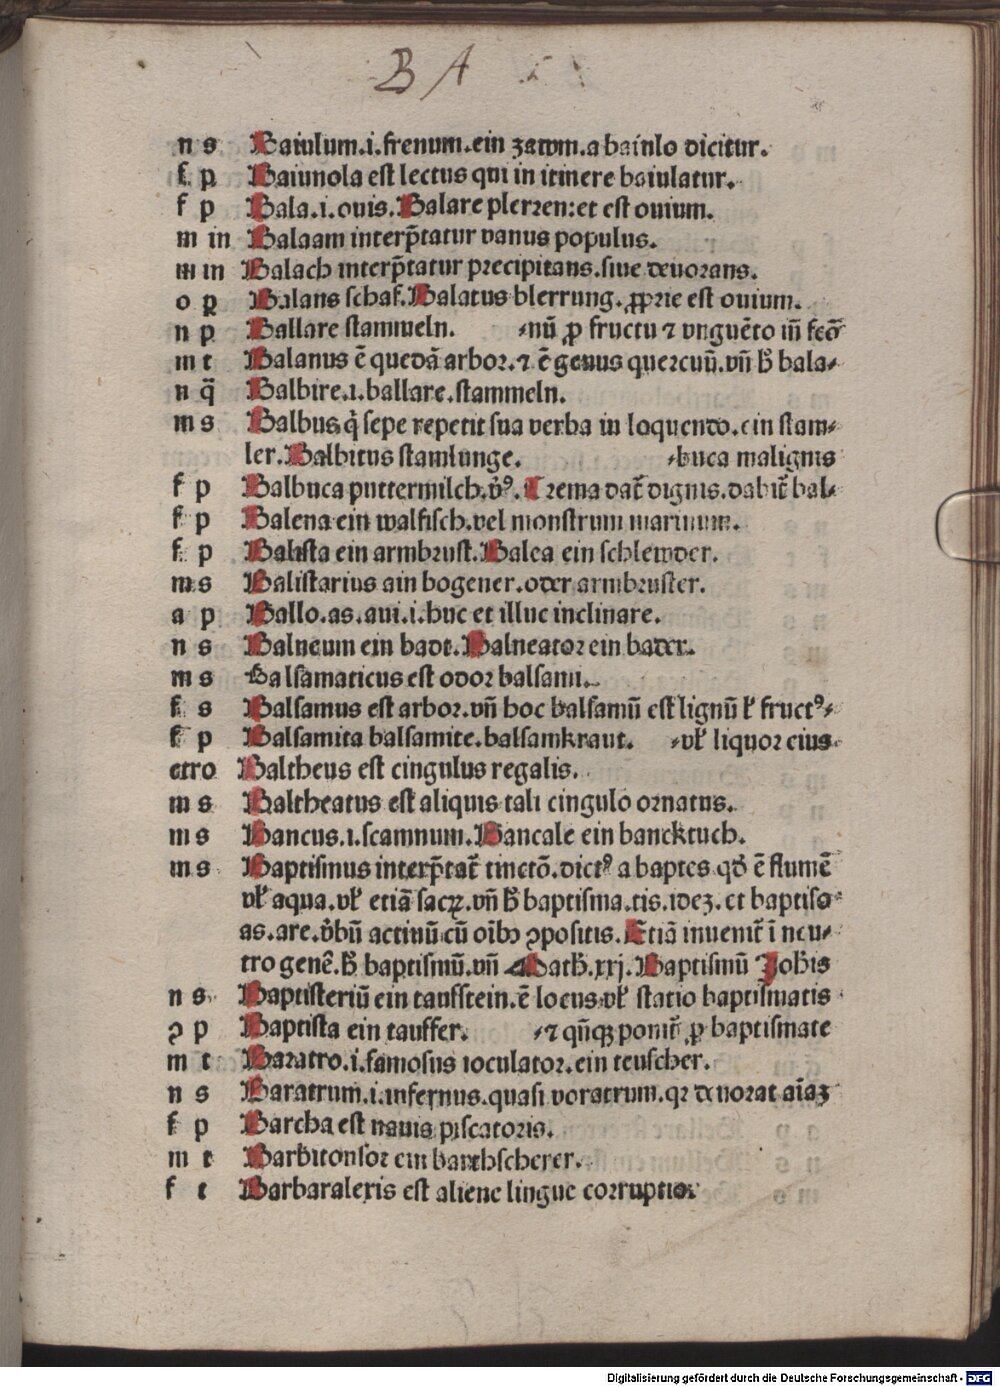 BA
n s Baiulum.i.frenum.ein zawm.a baiulo dicitur.
f p Baiunola est lectus qui in itinere baiulatur.
f p Bala.i.ouis.Balare plerren:et est ouium.
m in Balaam interp̄tatur vanus populus.
m in Balach interp̄tatur precipitans.siue deuorans.
o p Balans schaf.Balatus blerrung.ꝓprie est ouium.
n p Ballare stammeln. nū ꝓ fructu ⁊ vnguēto
m t Balanus ē quedā arbor.⁊ ē genus quercuū.vn̄ bala⸗
n q̄ Balbire.i.ballare.stammeln.
m s Balbus q̇ sepe repetit sua verba in loquendo.ein stam⸗
ler.Balbitus stamlunge. ⸗buca malignis
f p Balbuca puttermilch.v̇ꝰ.Crema dat̄ dignis.dabit̄ bal⸗
f p Balena ein walfisch.vel monstrum marinum.
f p Balista ein armbrust.Balea ein schlewder.
m s Balistarius ain bogener.oder armbruster.
a p Ballo.as.aui.i.huc et illuc inclinare.
n s Balneum ein badt.Balneator ein bader.
m s Balsamaticus est odor balsami.
f s Balsamus est arbor.vn̄ hoc balsamū est lignū ł fructꝰ⸗
f p Balsamita balsamite.balsamkraut. ⸗vł liquor eius
etro Baltheus est cingulus regalis.
m s Baltheatus est aliquis tali cingulo ornatus.
m s Bancus.i.scamnum.Bancale ein bancktuch.
m s Baptismus interp̄tat̄ tinctō.dictꝰ a baptes qđ ē flumē
vł aqua.vł etiā sacꝝ.vn̄ ħ baptisma.tis.idez.et baptiso
as.are.v̇bū actiuū cū oībꝫ ↄpositis.Etiā inuenit̄ ī neu⸗
tro genē.ħ baptismū.vn̄ Math̄.xxj.Baptismū Joh̄is
n s Baptisteriū ein taufstein.ē locus vł statio baptismatis
ↄ p Baptista ein tauffer. ⸗⁊ qn̄qꝫ ponit̄ ꝓ baptismate
m t Baratro.i.famosus ioculator.ein teuscher.
n s Baratrum.i.infernus.quasi voratrum.qꝛ deuorat aīaꝫ
f p Barcha est nauis piscatoris.
m t Barbitonsor ein barthscherer.
f t Barbaralexis est aliene lingue corruptio.
Digitalisierung gefördert durch die Deutsche Forschungsgemeinschaft - DFG